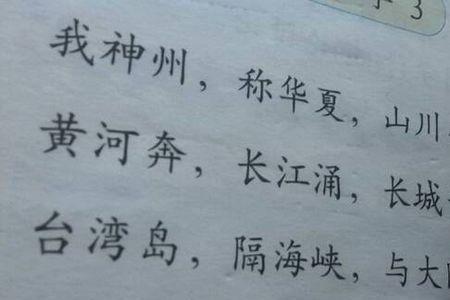 3
我神州，称华夏，山川
黄河奔，长江涌，长城
台湾岛，隔海峡，与大